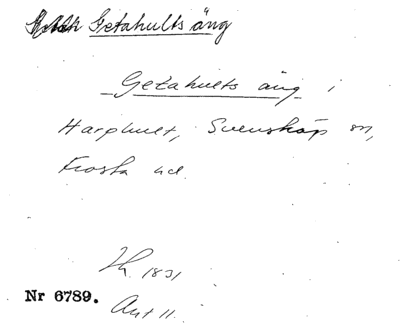 Getahults äng
Getahults äng i
Harphult, Svensköp sn,
Frosta hd.
1831
Nr 6789.
Akt 11.